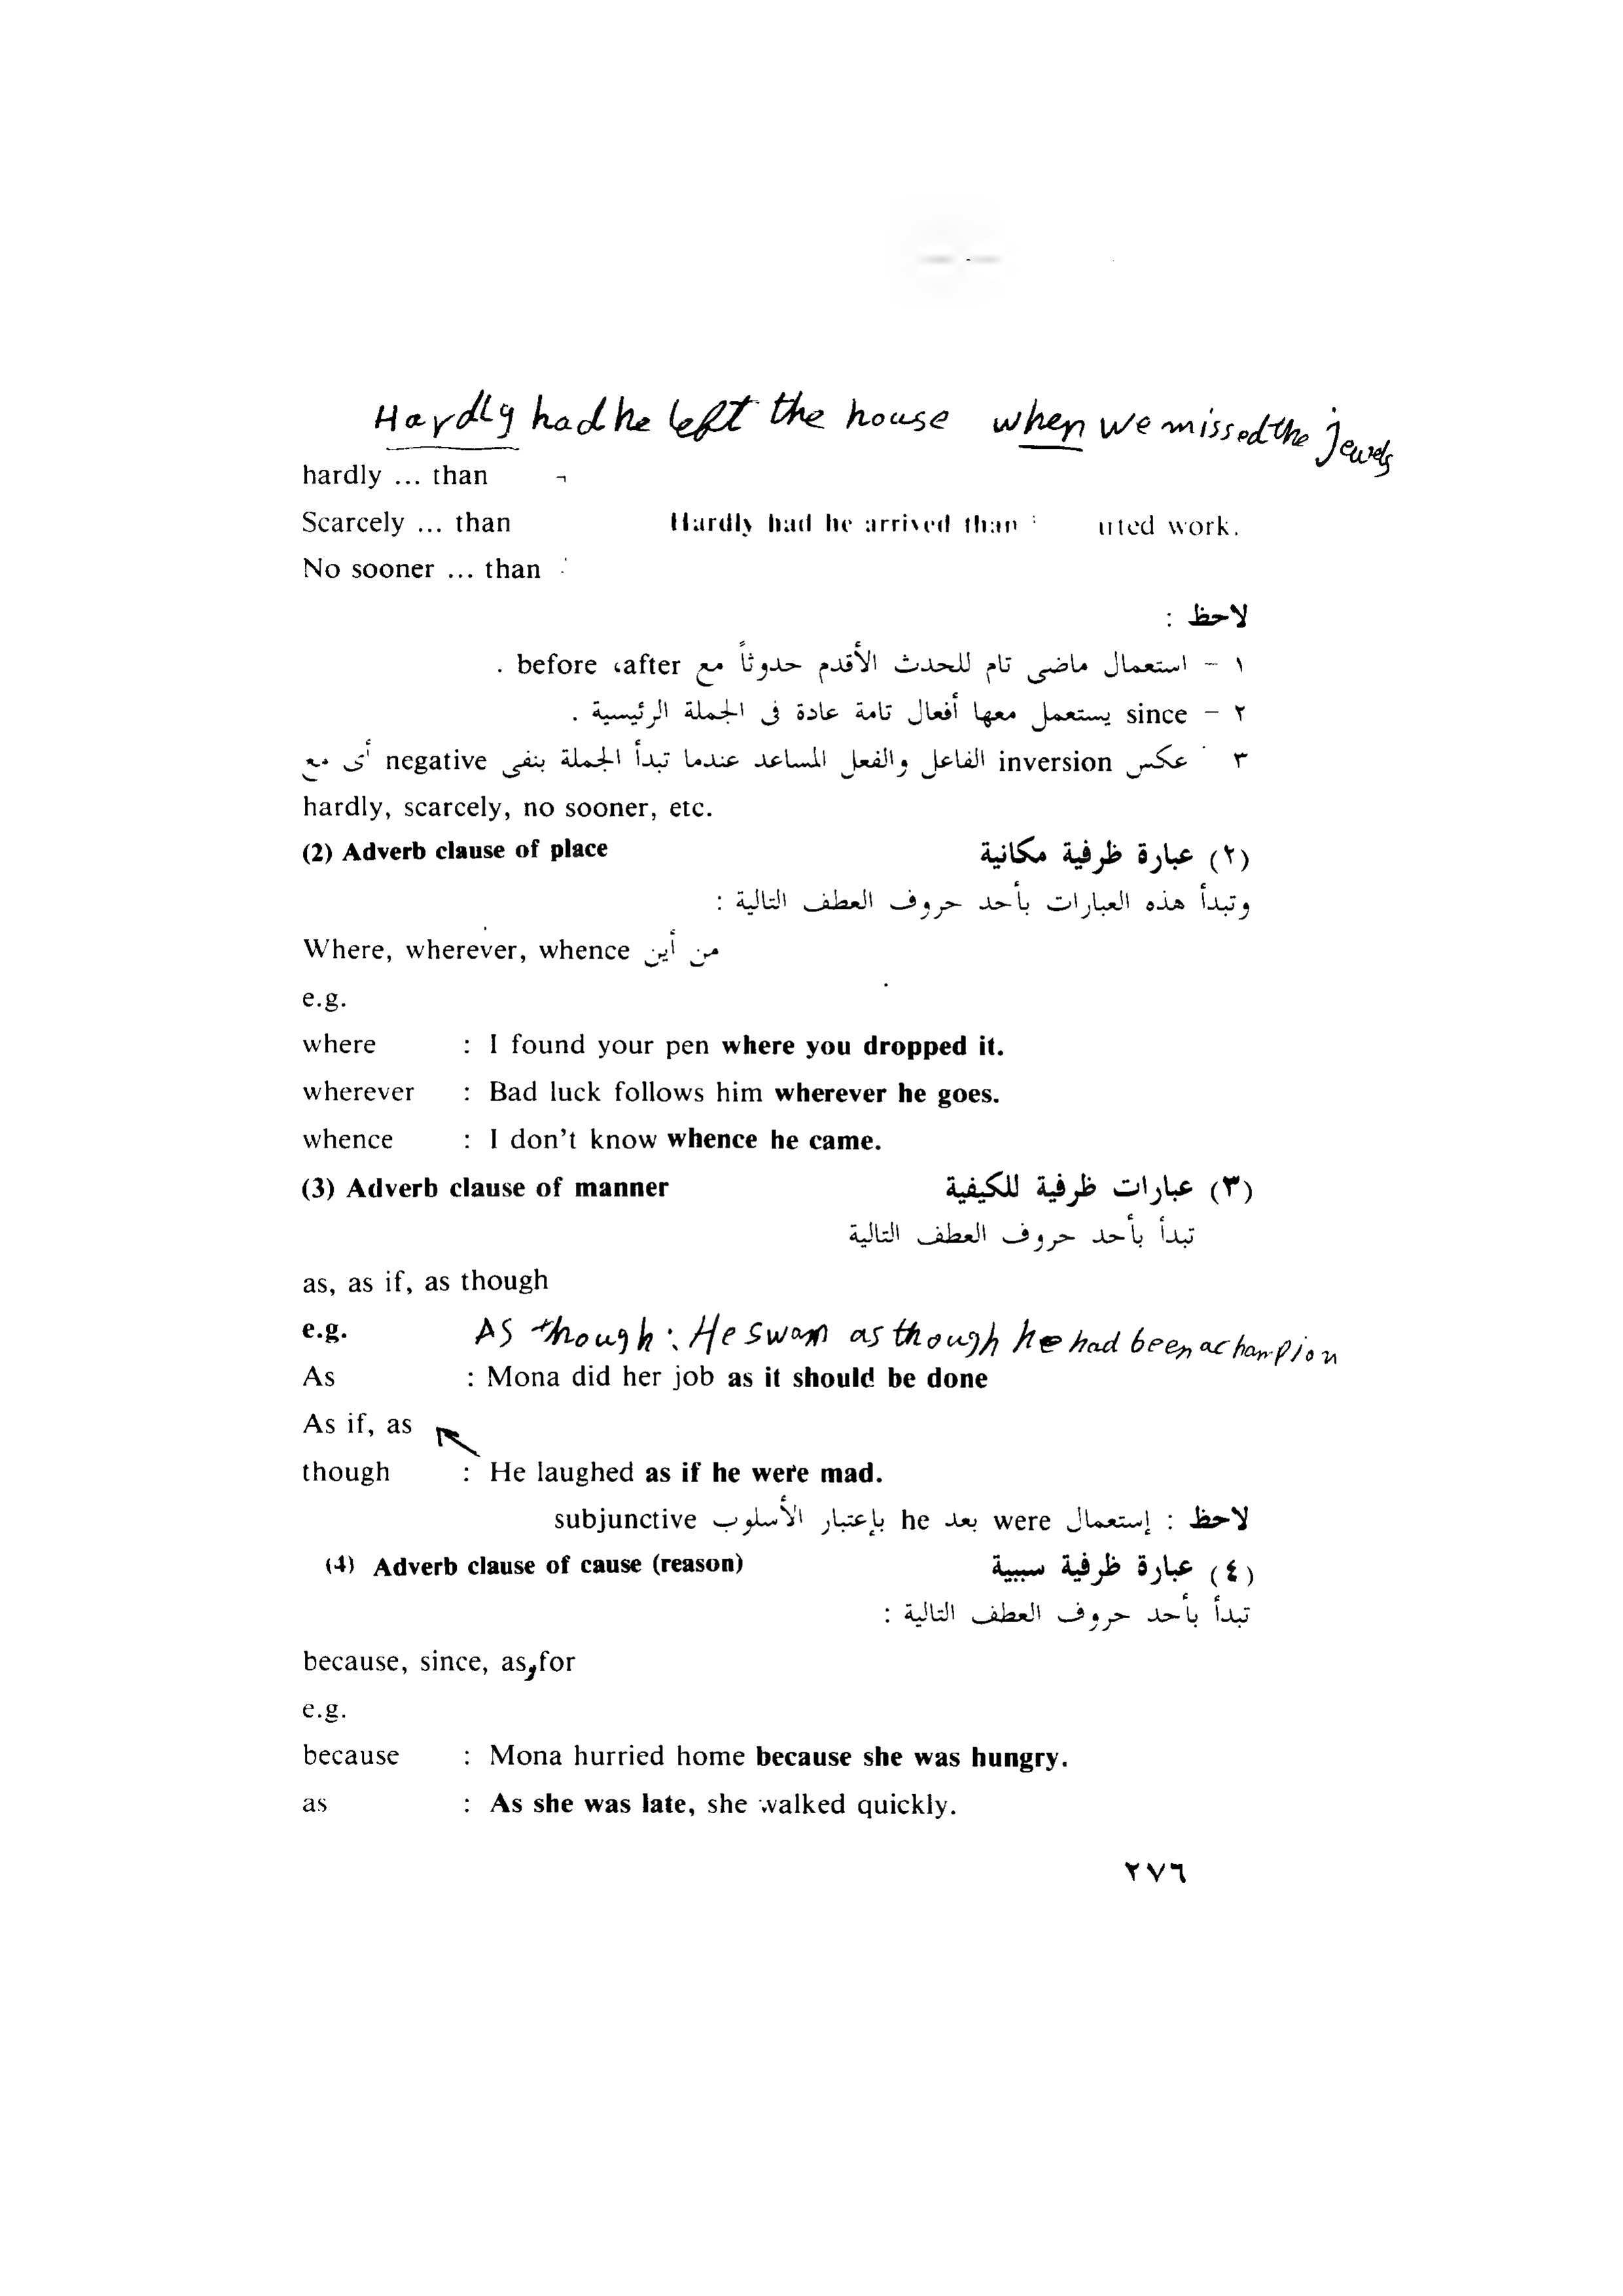 Hardly had he left the house when we missed the jewels
hardly ... than
Scarcely ... than Hardly had he arrived than work.
No sooner ... than
لاحظ :
١ - استعمال ماضى تام للحدث الأقدم حدوثاً مع before ،after .
٢ - since يستعمل معها أفعال تامة عادة فى الجملة الرئيسية .
٣ عكس inversion الفاعل والفعل المساعد عندما تبدأ الجملة بنفى negative أى مع
hardly, scarcely, no sooner, etc.
(2) Adverb clause of place (٢) عبارة ظرفية مكانية
وتبدأ هذه العبارات بأحد حروف العطف التالية :
Where, wherever, whence من أين
e.g.
where : I found your pen where you dropped it.
wherever : Bad luck follows him wherever he goes.
whence : I don't know whence he came.
(3) Adverb clause of manner (٣) عبارات ظرفية للكيفية
تبدأ بأحد حروف العطف التالية
as, as if, as though
e.g. As though : He swam as though he had been a champion
As : Mona did her job as it should be done
As if, as
though : He laughed as if he were mad.
لاحظ : إستعمال were بعد he بإعتبار الأسلوب subjunctive
(4) Adverb clause of cause (reason) (٤) عبارة ظرفية سببية
تبدأ بأحد حروف العطف التالية :
because, since, as, for
e.g.
because : Mona hurried home because she was hungry.
as : As she was late, she walked quickly.
٢٧٦